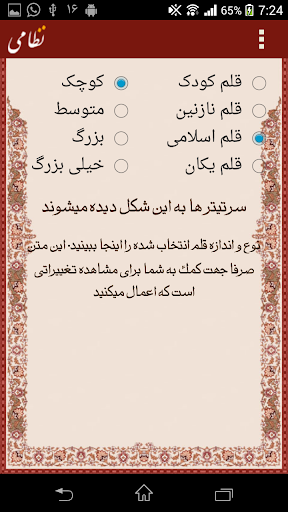 ۱۶ 85% 7:24
نظامی
قلم کودک کوچک
قلم نازنین متوسط
قلم اسلامی بزرگ
قلم یکان خیلی بزرگ
سرتیترها به این شکل دیده میشوند
نوع و اندازه قلم انتخاب شده را اینجا ببینید. این متن
صرفا جهت کمک به شما برای مشاهده تغییراتی
است که اعمال میکنید